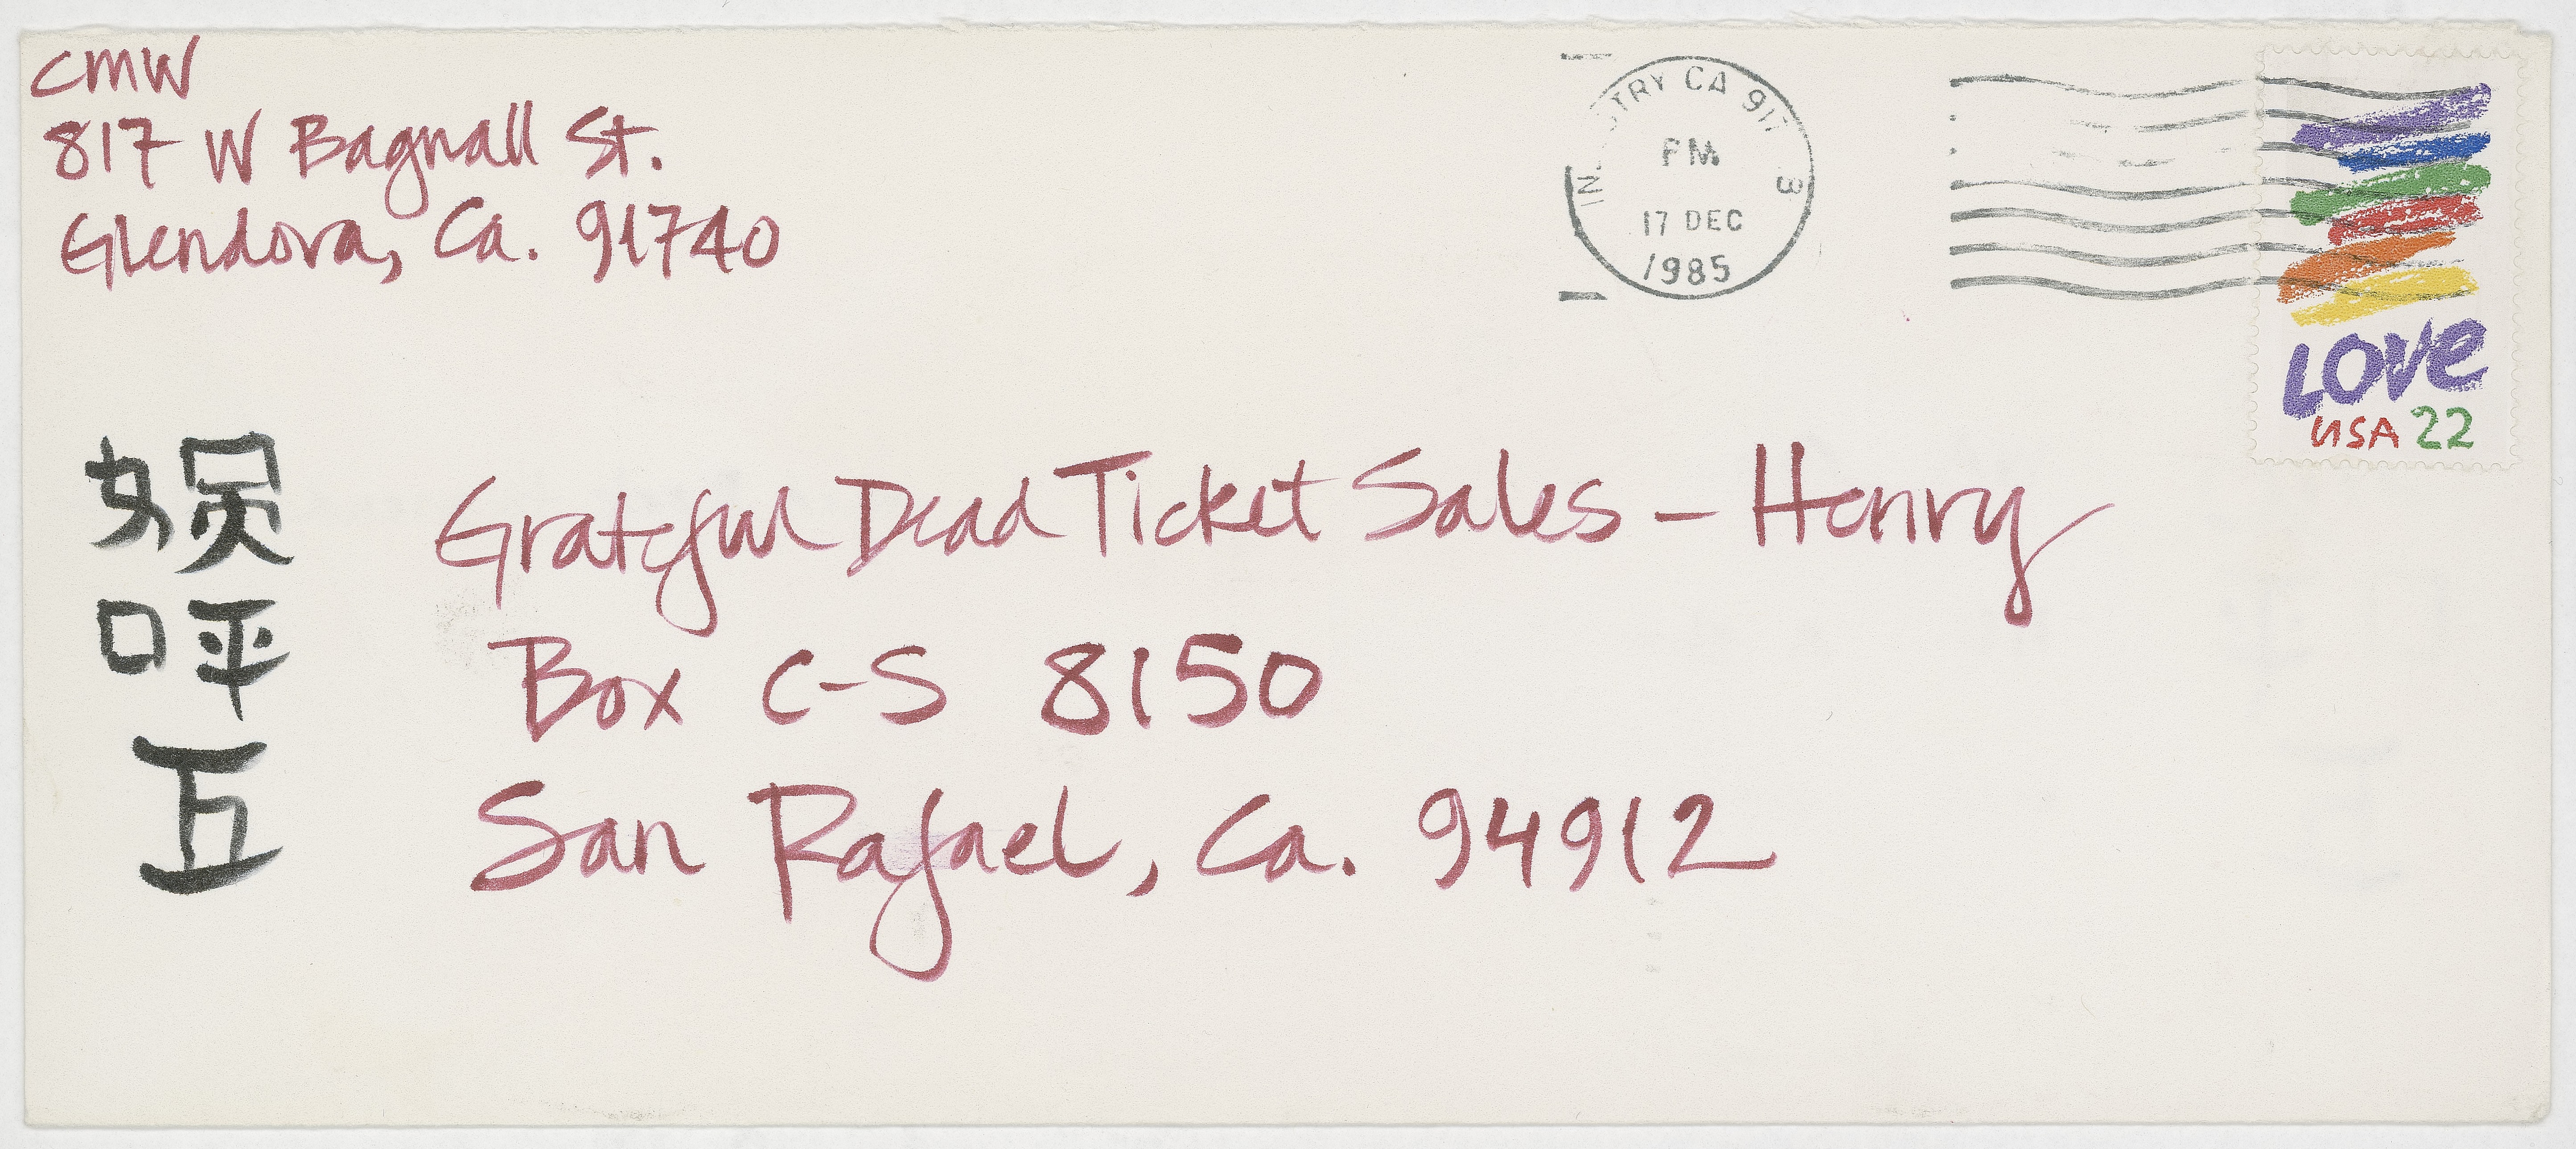 CMW
817 W Bagnall St.
Glendora, Ca. 91740
CA 917
PM
17 DEC
1985
LOVE
USA 22
Grateful Dead Ticket Sales – Henry
Box C-S 8150
San Rafael, Ca. 94912
呯
五